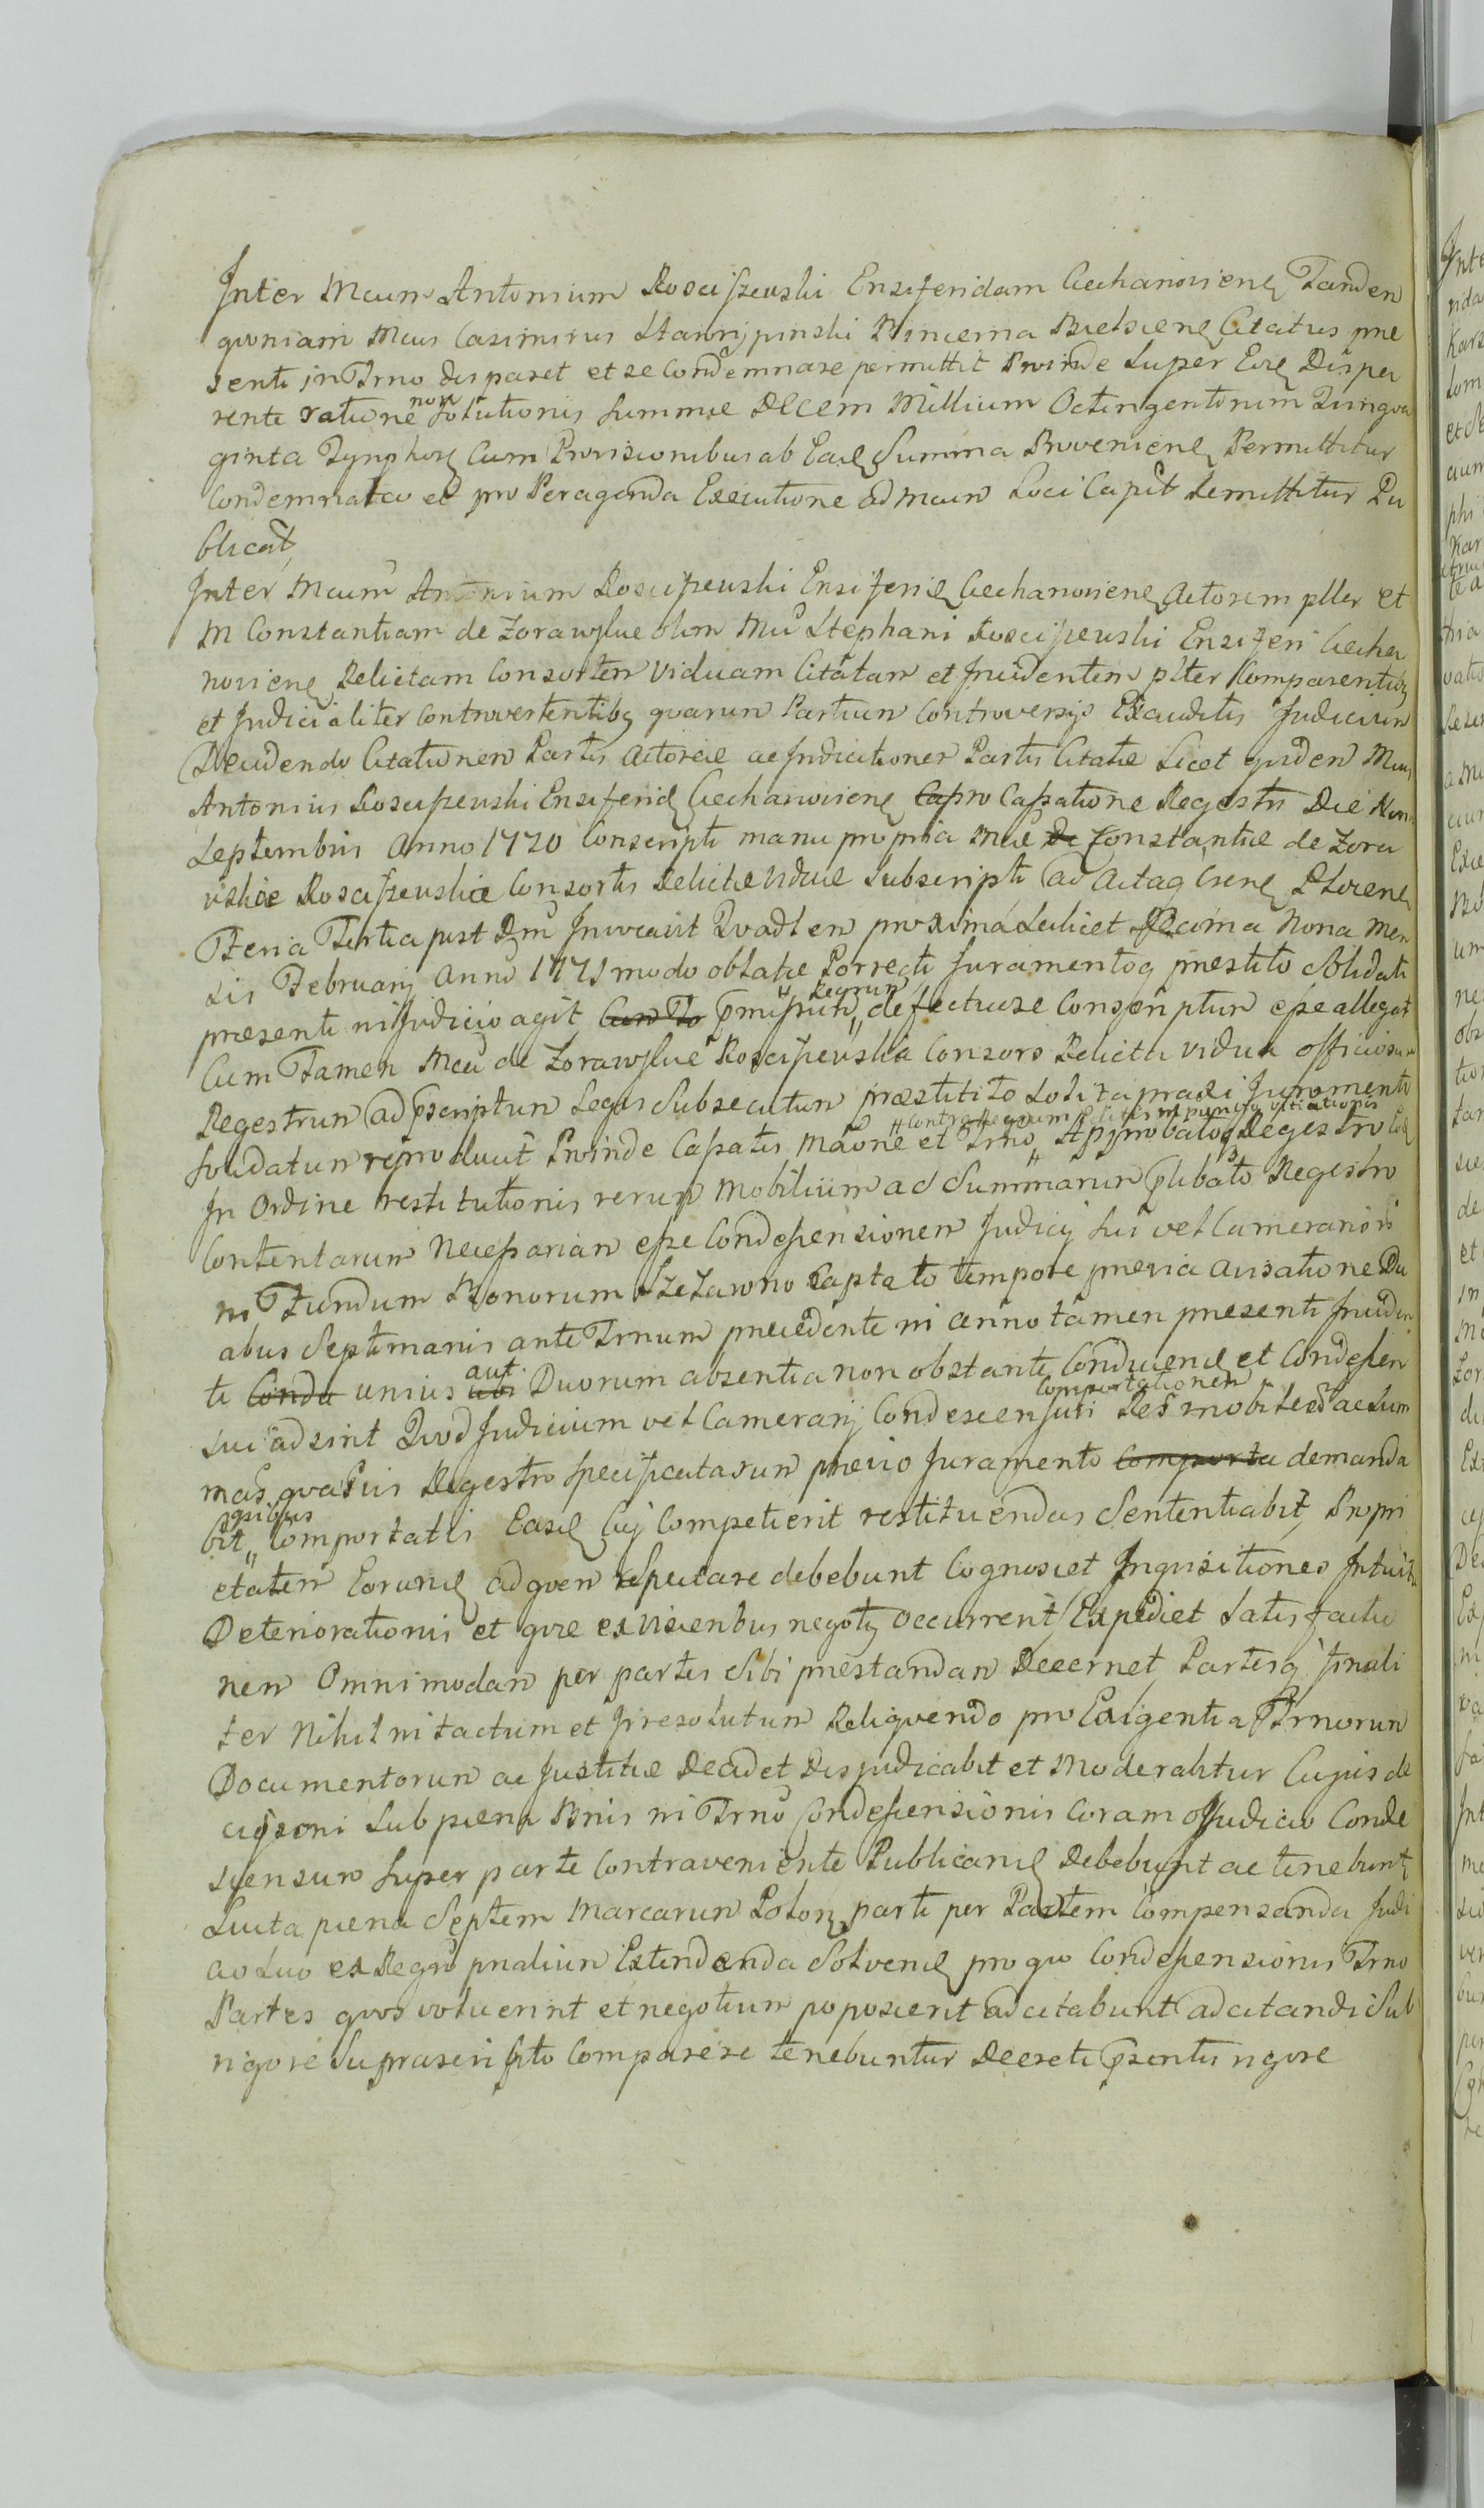 Inter Mcum Antonium Rosciszewski Ensiferidam Ciechanoviens Tanden
qvoniam Mcus Casimirus Stawypinski Pincerna Bielscens Citatus pre
senti in Trno disparet et se Condemnare permittit Proinde Super Eod Dispa
rente ratione non solutionis Summæ Decem Millium Octingentorum Qvinqva
ginta Tynphor Cum Provisionibus ab Ead Summa Proveniens Permittitur
Condemnata et pro Peragenda Executione ad mcum Loci Capit Remittitur Pu
blicat
Inter Mcum Antonium Rosciszewski Ensiferid Ciechanoviens Actorem plter et
M Constantiam de Zorawskie olim Mci Stephani Rosciszewski Ensiferi Ciecha
noviens Relictam Consorten Viduam Citatam et Incidentem plter Comparentibq
et Judicialiter Controvertentibq qvarum Partium Controversijs Exauditis Judicium
Decidendo Citationem Partis Actoreæ ac Inducitiones Partis Citatæ Licet qviden Mcus
Antonius Rosciszewski Ensiferid Ciechanoviens Ca pro Cassatione Regestri Die Non
Septembris Anno 1770 Conscripti manu propria Mcæ De Constantiæ de Zora
wskie Rosciszewskie Consortis Relictæ Viduæ Subscripti ad Acta Csens Plocens
Feria Tertia post Dm Invocavit Qvadlem proxima Scilicet Decima Nona Men
sis Februarij Anno 1771 modo oblatæ Porrecti Juramentoq prestito Solidati
presenti in Judicio agit Cum To pmissum Regrum defectuose Conscriptum esse allegat
Cum Tamen Mca de Zorawskie Rosciszewska Consors Relicta Vidua officiosum
Regestrum ad prscriptum Legis Subsecutum præstitito Solito praxi Juramento
Solidatum reproduxit Proinde Cassatis Maone et Trno contra Regrum Apprrobatoq Regestro Eod
In Ordine restitutionis rerum Mobilium ac Summarum plibato Regestro
Contentarum Necessariam esse Condessensionem Judicij Sui vel Camerarior
in Fundum Bonorum Szezawno Captato tempore previa avisatione Du
abus Septimanis ante Trnum precedente in anno tamen presenti Inciden
ti Conda unius aut ubi Duorum absentia non obstante Conduens et Condessen
sui adsint Qvod Judicium vel Camerarij Condescensuri Comportationem Res mobiles ac Sum
mas qvasvis Regestro Specificatarum previo Juramento Comporta demanda
bit qsibus Comportatis Easd Cuj Competierit restituendas Sententiabit Propri
etatem Eorund ad qvem Spectare debebunt Cognoscet Inqvisitiones Intuitu
Deteriorationis et qvæ ex visceribus negotij occurrent Expediet Satisfactio
nem Omnimodam per partes Sibi prestandam Decernet Partesq finali
ter Nihil intactum et Irresolutum Reliqvendo pro Exigentia Trnorum
Documentorum ac Justitiæ Decidet Disjudicabit et Moderabitur Cujus de
cisioni Sub pæna Bnis in Trno Condessensionis Coram Judicio Conde
scensuro Super parte Contraveniente Publicand Debebunt ac tenebunt
Luita pæna Septem Marcarum Polon parti per Partem Compensanda Judi
cio Suo ex Regro pnalium Extendenda Solvend pro qvo Condessensionis Trno
Partes qvos voluerint et negotium poposcerit adcitabunt Adcitandi Sub
rigore Suprascripto Comparere tenebuntur Decreti prsentis rigore